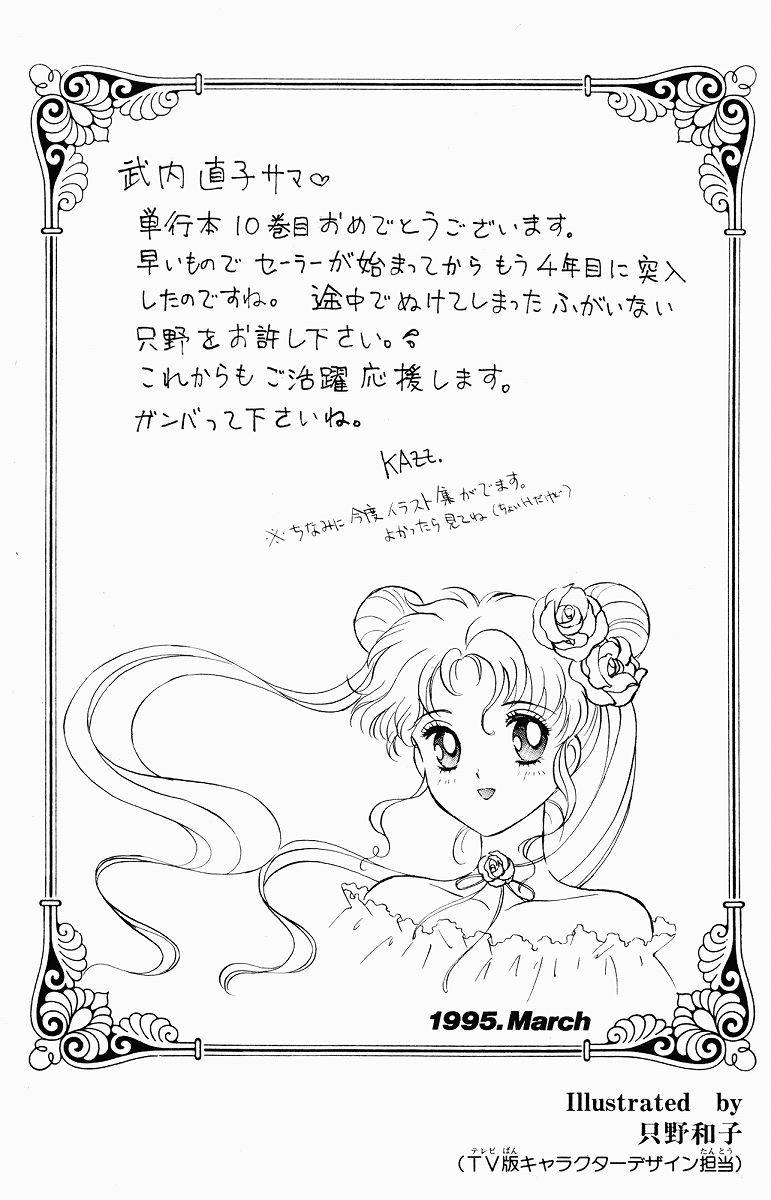 武内 直子サマ♡
単行本 10巻目おめでとうございます。
早いもので セーラーが始まってから もう 4年目に 突入
したのですね。 途中でぬけてしまった ふがいない
只野をお許し下さい。
これからも ご活躍 応援します。
ガンバって下さいね。
KAZZ.
※ちなみに 今度 イラスト集がでます。
よかったら 見てね (ちょいHだけど)
1995.March
Illustrated by
只野和子
テレビ ばん たんとう
(TV版キャラクターデザイン担当)